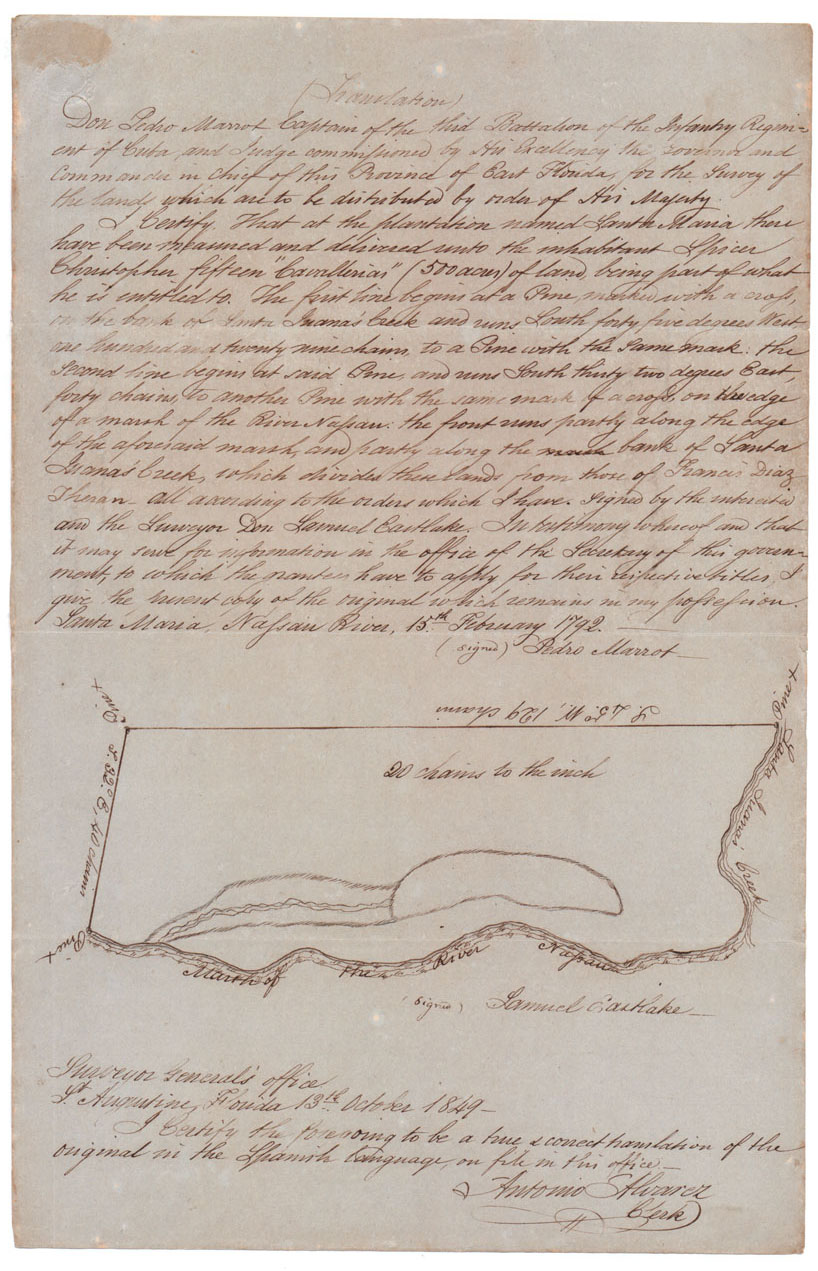 (Translation)
Don Pedro Marrot, Captain of the third Battalion of the Infantry Regim=
ent of Cuba, and Judge commissioned by His Excellency the Governor and
Commander in chief of this Province of East Florida, for the Survey of
the lands which are to be distributed by order of His Majesty.
I Certify, That at the plantation named Santa Maria there
have been measured and delivered unto the inhabitant Spicer
Christopher fifteen "Cavallerias" (500 acres) of land, being part of what
he is entitled to. The first line begins at a Pine marked with a cross,
on the bank of Santa Juana's Creek and runs South forty five degrees West
one hundred and twenty nine chains, to a Pine with the same mark: the
Second line begins at said Pine, and runs South thirty two degrees East,
forty chains, to another Pine with the same mark of a cross, on the edge
of a marsh of the River Nassau: the front runs partly along the edge
of the aforesaid marsh, and partly along the bank of Santa
Juana's Creek, which divides these lands from those of Francis Diaz
Theran - all according to the orders which I have. Signed by the interested
and the Surveyor Don Samuel Eastlake. In testimony whereof and that
it may serve for information in the office of the Secretary of this govern=
ment, to which the grantees have to apply for their respective titles, I
give the present copy of the original which remains in my possession.
Santa Maria, Nassau River, 15th February 1792.
(signed) Pedro Marrot
Pine +
S. 45 W. 129 chains
Pine +
20 chains to the inch
S. 32° E. 40 chains
Santa Juana's Creek
Pine +
Marsh of the River Nassau
(signed) Samuel Eastlake
Surveyor General's office
St Augustine, Florida 13th October 1849
I Certify the foregoing to be a true & correct translation of the
original in the Spanish Language, on file in this office
Antonio Alvarez
Clerk